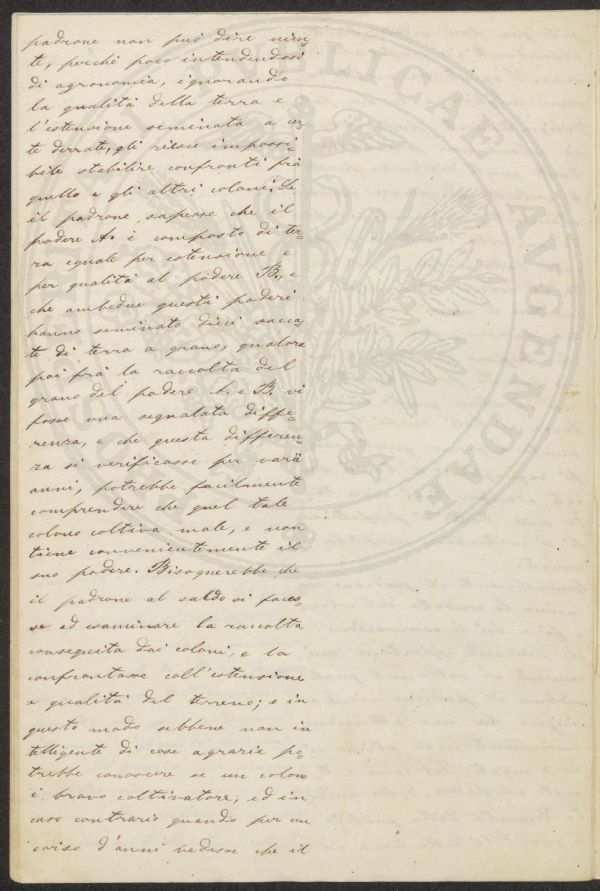 padrone non può dire nien
te, perché poco intendendosi
di agronomia, ignorando
la qualità della terra e
l'estensione seminata a cer=
te derrate, gli riesce impossi=
bile stabilire confronti frà
quello e gli altri coloni. Se
il padrone sapesse che il
podere A. è composto di ter=
ra eguale per estensione e
per qualità al podere B., e
che ambedue questi poderi
hanno seminato dieci sacca=
te di terra a grano, qualora
poi frà la raccolta del
grano del podere A. e B. vi
fosse una segnalata diffe=
renza, e che questa differen=
za si verificasse per varii
anni, potrebbe facilmente
comprendere che quel tale
colono coltiva male, e non
tiene convenientemente il
suo podere. Bisognerebbe che
il padrone al saldo si faces=
se ad esaminare la raccolta
conseguita dai coloni, e la
confrontasse coll'estensione
e qualità del terreno; e in
questo modo sebbene non in
telligente di cose agrarie po=
trebbe conoscere se un colono
è bravo coltivatore, ed in
caso contrario quando per un
corso d'anni vedesse che il
PUBLICAE AUGENDAE